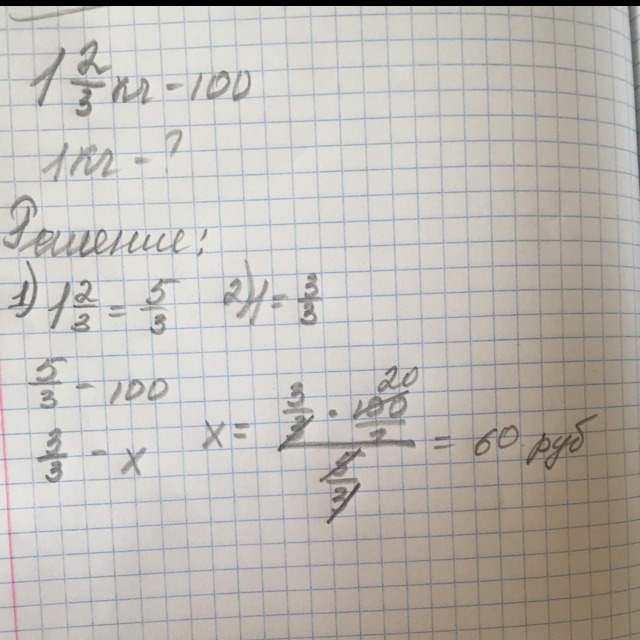 1 2/3 кг - 100
1 кг - ?
Решение:
1) 1 2/3 = 5/3 2) 1 = 3/3
5/3 - 100
3/3 - x x = (3/3 · 100/1) / (5/3) = 60 руб
20